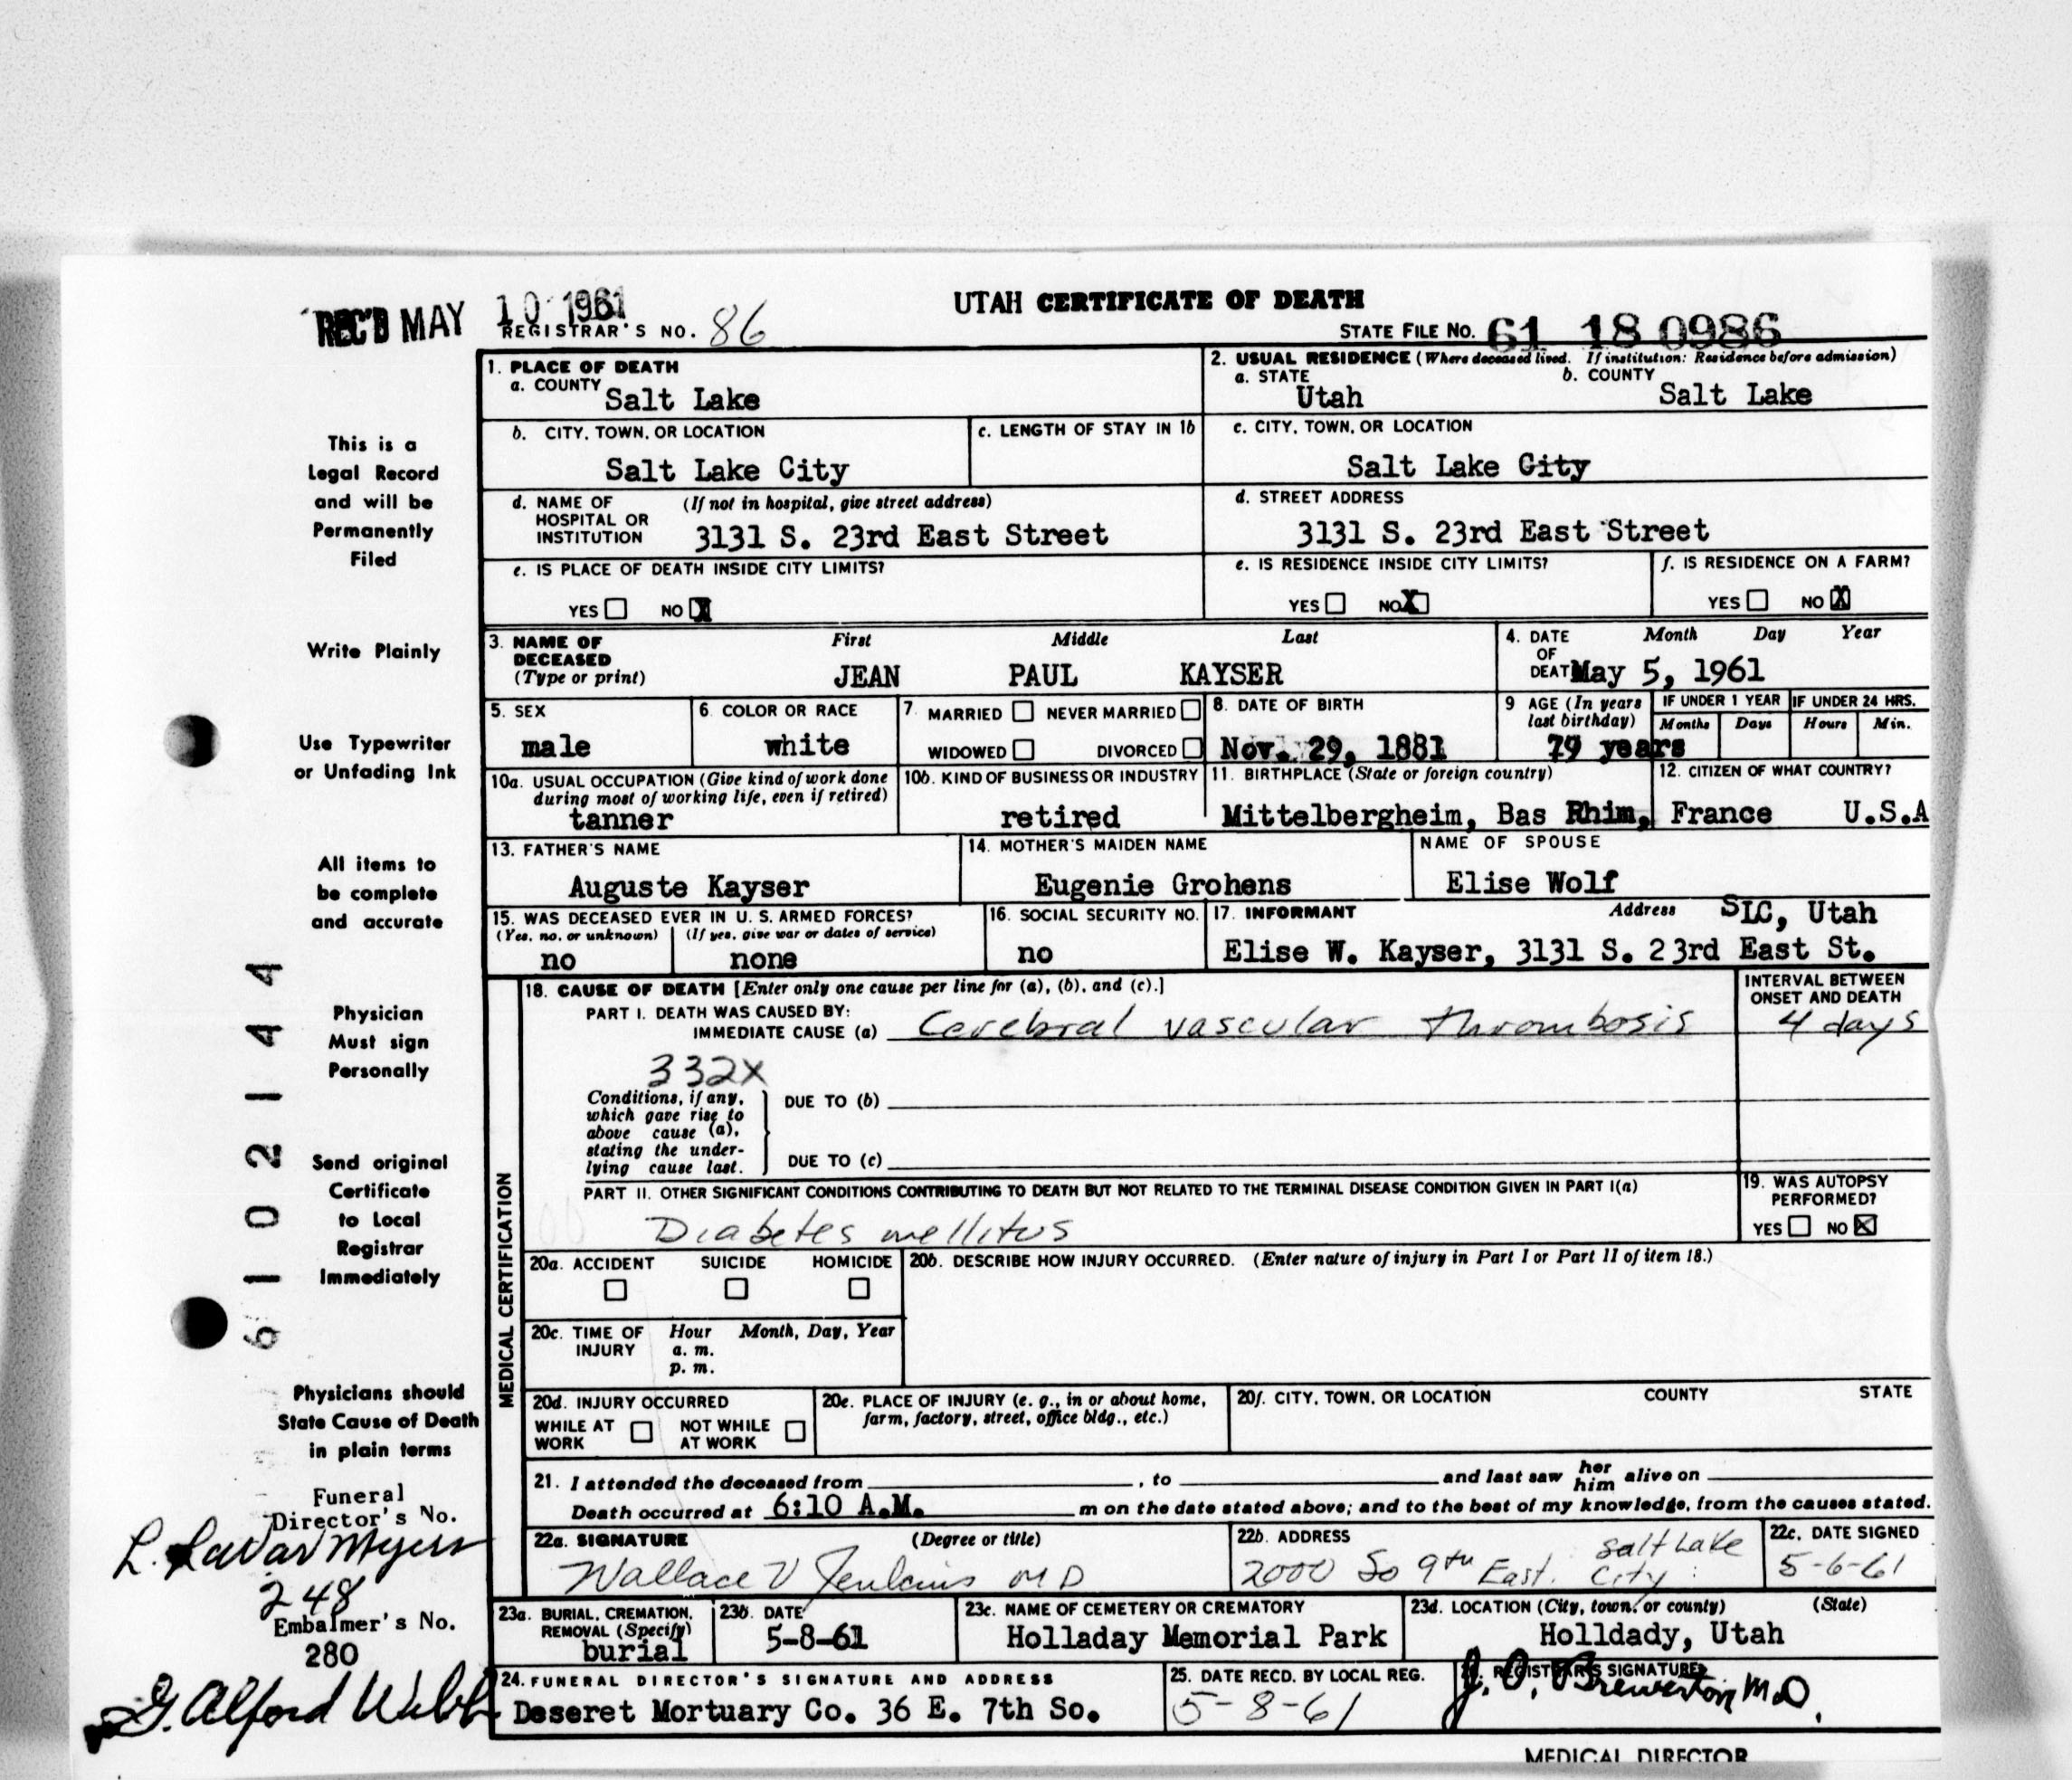 REC'D MAY 10 1961
UTAH CERTIFICATE OF DEATH
REGISTRAR'S NO. 86
STATE FILE NO. 61 18 0986
1. PLACE OF DEATH
a. COUNTY Salt Lake
2. USUAL RESIDENCE (Where deceased lived. If institution: Residence before admission)
a. STATE Utah b. COUNTY Salt Lake
b. CITY, TOWN, OR LOCATION Salt Lake City
c. LENGTH OF STAY IN 1b
c. CITY, TOWN, OR LOCATION Salt Lake City
d. NAME OF HOSPITAL OR INSTITUTION (If not in hospital, give street address) 3131 S. 23rd East Street
d. STREET ADDRESS 3131 S. 23rd East Street
e. IS PLACE OF DEATH INSIDE CITY LIMITS?
YES NO X
e. IS RESIDENCE INSIDE CITY LIMITS?
YES NO X
f. IS RESIDENCE ON A FARM?
YES NO X
3. NAME OF DECEASED (Type or print) First Middle Last
JEAN PAUL KAYSER
4. DATE OF DEATH Month Day Year
May 5, 1961
5. SEX male
6. COLOR OR RACE white
7. MARRIED NEVER MARRIED
WIDOWED DIVORCED
8. DATE OF BIRTH Nov. 29, 1881
9 AGE (In years last birthday) 79 years
IF UNDER 1 YEAR Months Days
IF UNDER 24 HRS. Hours Min.
10a. USUAL OCCUPATION (Give kind of work done during most of working life, even if retired) tanner
10b. KIND OF BUSINESS OR INDUSTRY retired
11. BIRTHPLACE (State or foreign country) Mittelbergheim, Bas Rhim, France
12. CITIZEN OF WHAT COUNTRY? U.S.A
13. FATHER'S NAME Auguste Kayser
14. MOTHER'S MAIDEN NAME Eugenie Grohens
NAME OF SPOUSE Elise Wolf
15. WAS DECEASED EVER IN U. S. ARMED FORCES?
(Yes, no, or unknown) no
(If yes, give war or dates of service) none
16. SOCIAL SECURITY NO. no
17. INFORMANT Address SLC, Utah
Elise W. Kayser, 3131 S. 23rd East St.
MEDICAL CERTIFICATION
18. CAUSE OF DEATH [Enter only one cause per line for (a), (b), and (c).]
INTERVAL BETWEEN ONSET AND DEATH
PART I. DEATH WAS CAUSED BY:
IMMEDIATE CAUSE (a) Cerebral vascular thrombosis 4 days
332X
Conditions, if any, which gave rise to above cause (a), stating the underlying cause last.
DUE TO (b)
DUE TO (c)
PART II. OTHER SIGNIFICANT CONDITIONS CONTRIBUTING TO DEATH BUT NOT RELATED TO THE TERMINAL DISEASE CONDITION GIVEN IN PART I(a)
Diabetes mellitus
19. WAS AUTOPSY PERFORMED?
YES NO X
20a. ACCIDENT SUICIDE HOMICIDE
20b. DESCRIBE HOW INJURY OCCURRED. (Enter nature of injury in Part I or Part II of item 18.)
20c. TIME OF INJURY Hour Month, Day, Year
a. m.
p. m.
20d. INJURY OCCURRED
WHILE AT WORK NOT WHILE AT WORK
20e. PLACE OF INJURY (e. g., in or about home, farm, factory, street, office bldg., etc.)
20f. CITY, TOWN, OR LOCATION COUNTY STATE
21. I attended the deceased from , to and last saw her him alive on
Death occurred at 6:10 A.M. m on the date stated above; and to the best of my knowledge, from the causes stated.
22a. SIGNATURE (Degree or title)
Wallace V Jenkins MD
22b. ADDRESS
2000 So 9th East. Salt Lake City
22c. DATE SIGNED
5-6-61
23a. BURIAL, CREMATION, REMOVAL (Specify) burial
23b. DATE 5-8-61
23c. NAME OF CEMETERY OR CREMATORY Holladay Memorial Park
23d. LOCATION (City, town, or county) (State) Holldady, Utah
24. FUNERAL DIRECTOR'S SIGNATURE AND ADDRESS
Deseret Mortuary Co. 36 E. 7th So.
25. DATE RECD. BY LOCAL REG.
5-8-61
REGISTRAR'S SIGNATURE
J. O. Brewerton M.D.
MEDICAL DIRECTOR
This is a
Legal Record
and will be
Permanently
Filed
Write Plainly
Use Typewriter
or Unfading Ink
All items to
be complete
and accurate
Physician
Must sign
Personally
Send original
Certificate
to Local
Registrar
Immediately
Physicians should
State Cause of Death
in plain terms
Funeral
Director's No.
L. LaVar Myers
248
Embalmer's No.
280
G. Alford Webb
6102144